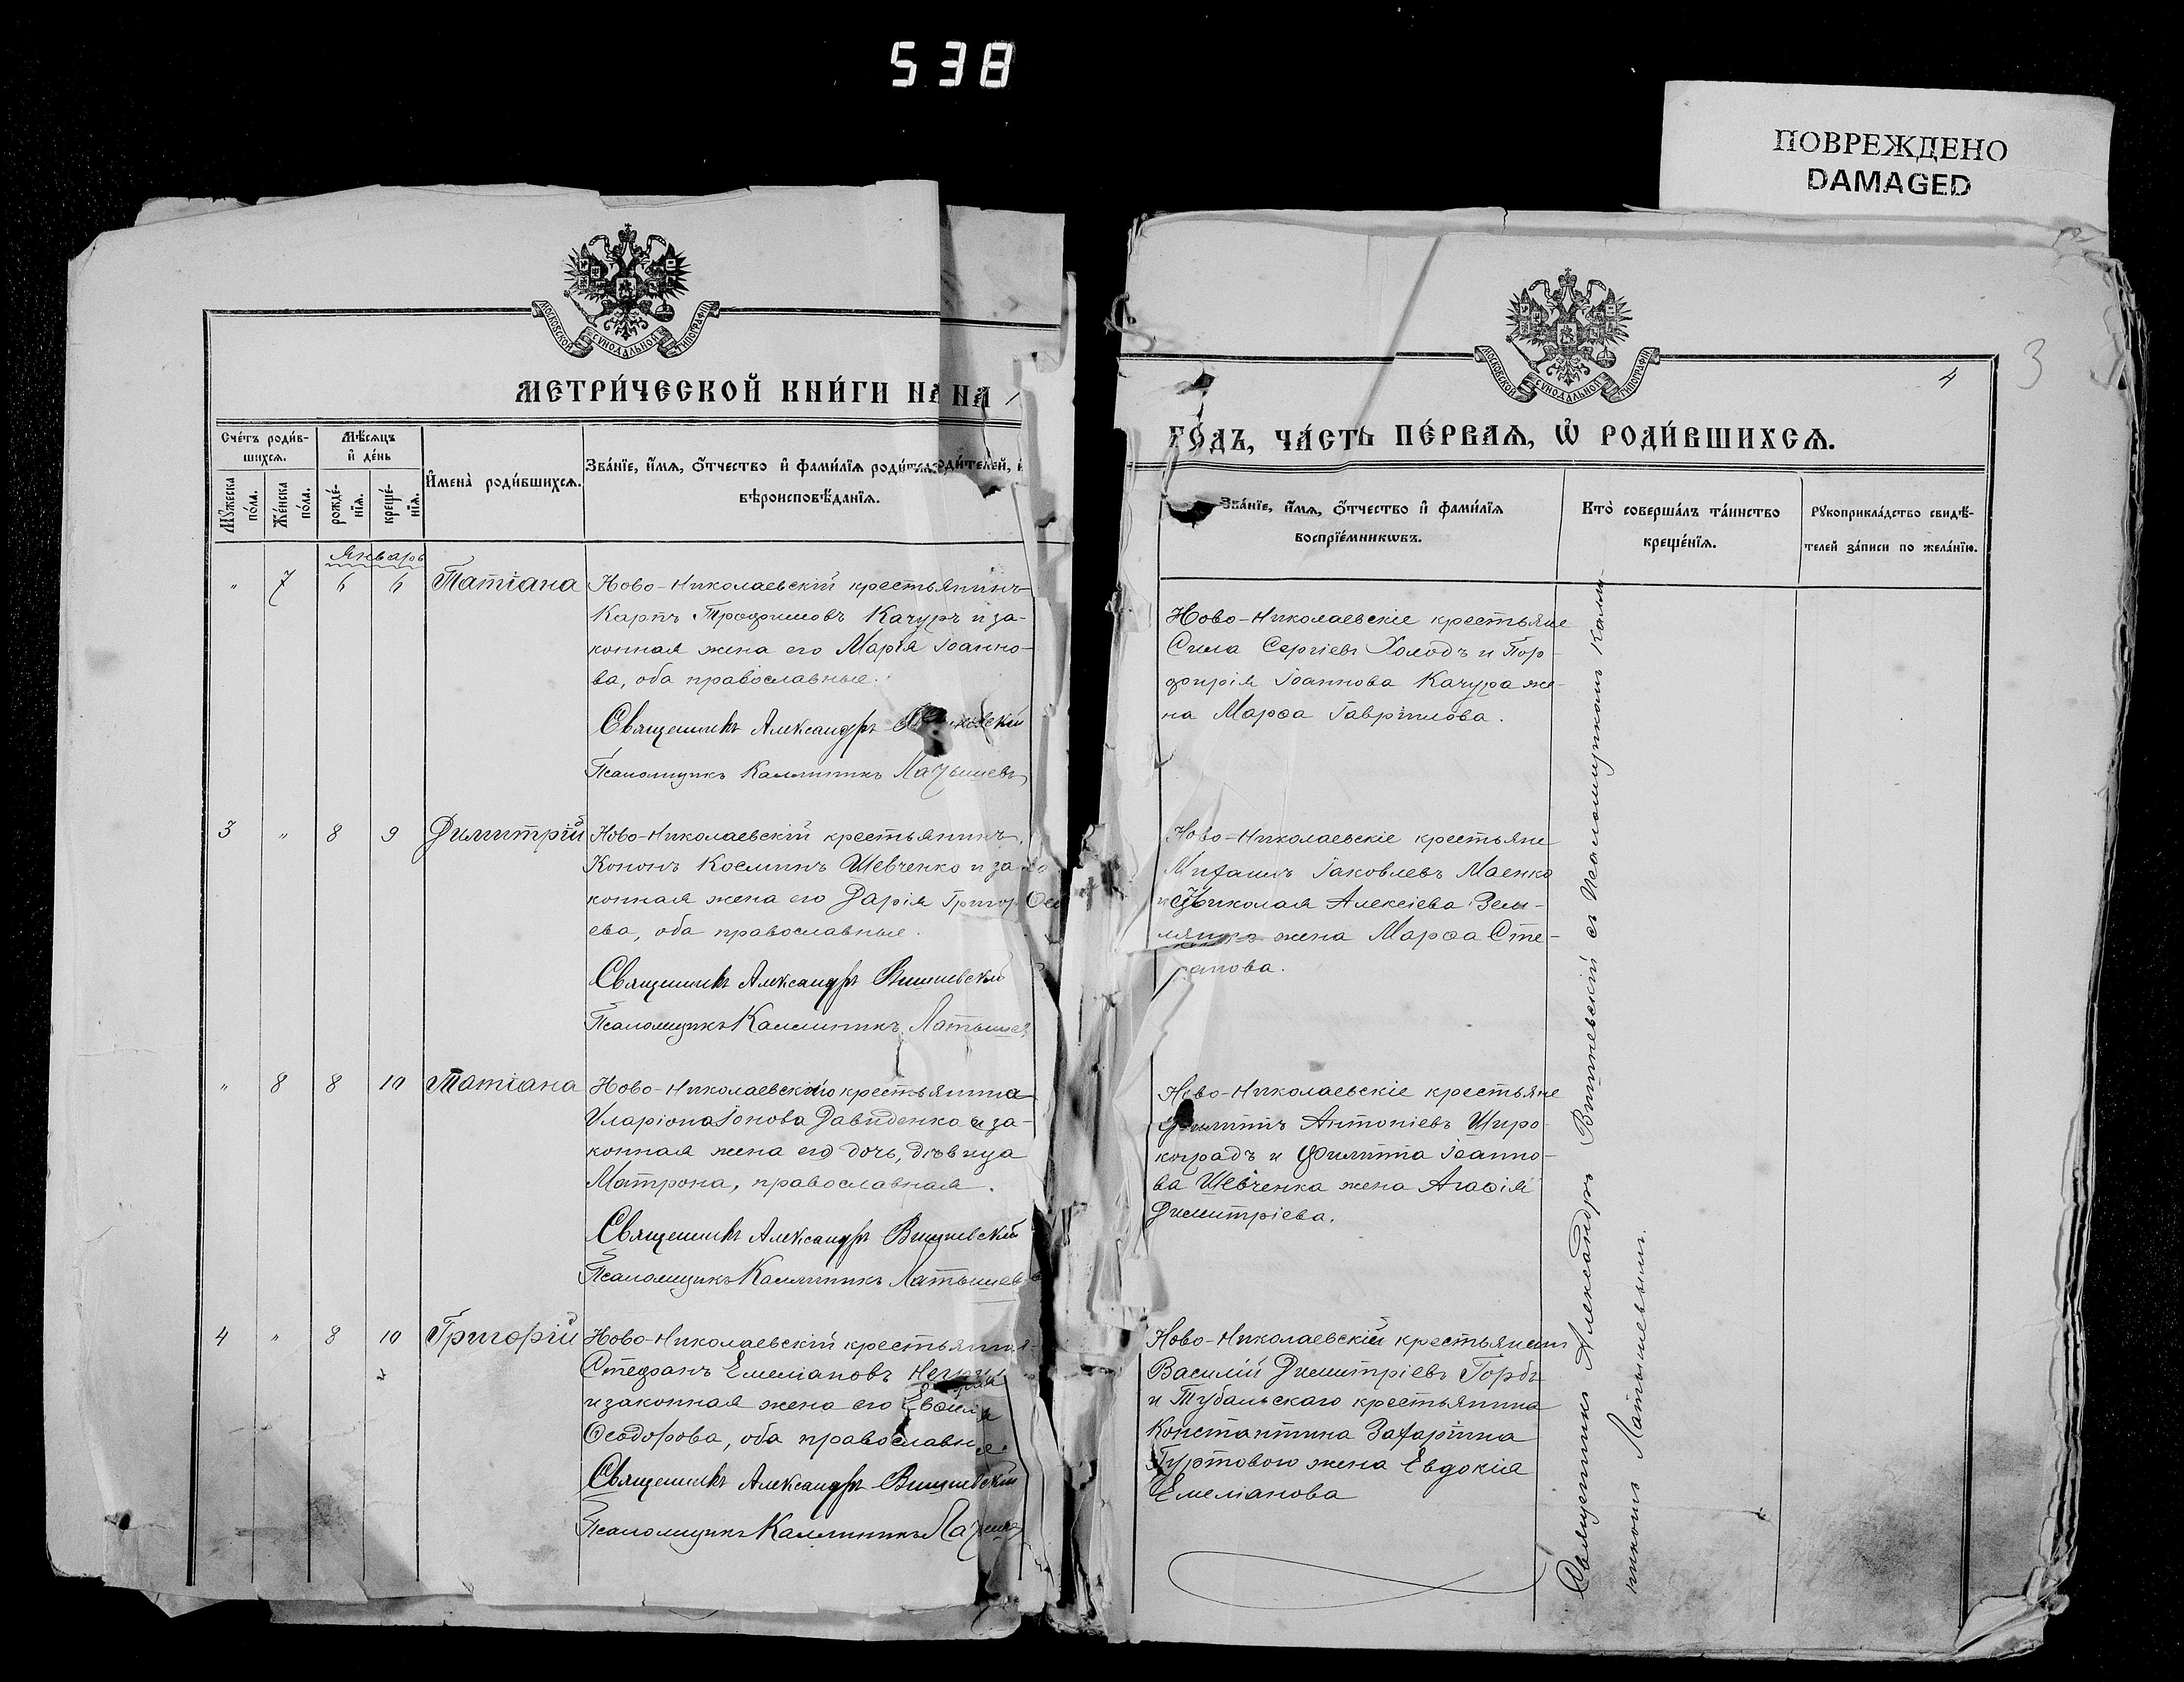 538
ПОВРЕЖДЕНО
DAMAGED
МОСКОВСКОЙ СѴНОДАЛЬНОЙ ТИПОГРАФІИ
МЕТРИ́ЧЕСКОЙ КНИ́ГИ НА НА
Сче́тъ роди́в-
шихсѧ.
Мѣ́сѧцъ
и҆ де́нь
И҆мена̀ роди́вшихсѧ.
Зва́нїе, и҆́мѧ, ѻ҆́тчество и҆ фами́лїѧ роди́телей,
вѣроисповѣ́данїѧ.
Мꙋ́жеска по́ла.
Же́нска по́ла.
рожде́-нїѧ.
креще́-нїѧ.
Январь
" 7 6 6 Татіана
Ново-Николаевскій крестьянинъ
Карпъ Трофимовъ Качуръ и за-
конная жена его Марія Іоанно-
ва, оба православные.
Священникъ Александръ
Псаломщикъ Каллиникъ
3 " 8 9 Димитрій
Ново-Николаевскій крестьянинъ
Кононъ Косминъ Шевченко и за-
конная жена его Дарія Григор
ева, оба православные.
Священникъ Александръ Вишневскій
Псаломщикъ Каллиникъ Латышев
" 8 8 10 Татіана
Ново-Николаевскаго крестьянина
Иларіона Іонова Давиденко и за-
конная жена его дочь, дѣвица
Матрона, православная.
Священникъ Александръ Вишневскій
Псаломщикъ Каллиникъ Латышев
4 " 8 10 Григорій
Ново-Николаевскій крестьянин
Стефанъ Емеліановъ
и законная жена его
Ѳеодорова, оба православные.
Священникъ Александръ Вишневскій
Псаломщикъ Каллиникъ
МОСКОВСКОЙ СѴНОДАЛЬНОЙ ТИПОГРАФІИ
4
3
ГО́ДЪ, ЧА́СТЬ ПЕ́РВАѦ, Ѽ РОДИ́ВШИХСѦ.
Зва́нїе, и҆́мѧ, ѻ҆́тчество и҆ фами́лїѧ
воспрїе́мникѡвъ.
Кто̀ соверша́лъ та́инство
креще́нїѧ.
Рꙋкоприкла́дство свидѣ́-
телей за́писи по жела́нїю.
Ново-Николаевскіе крестьяне
Сила Сергіевъ Холодъ и Пор-
фирія Іоаннова Качура же-
на Марѳа Гавріилова.
Ново-Николаевскіе крестьяне
Михаилъ Іаковлевъ Маенко
и Николая Алексіева Зем-
лянко жена Марѳа Сте-
фанова.
Ново-Николаевскіе крестьяне
Филиппъ Антоніевъ Широ-
коградъ и Филиппа Іоанно-
ва Шевченка жена Агаѳія
Димитріева.
Ново-Николаевскій крестьянинъ
Василій Димитріевъ Горбъ
и Тубальскаго крестьянина
Константина Захаріина
Гуртового жена Евдокія
Емеліанова
Священникъ Александръ Вишневскій съ Псаломщикомъ Калли-
никомъ Латышевымъ.